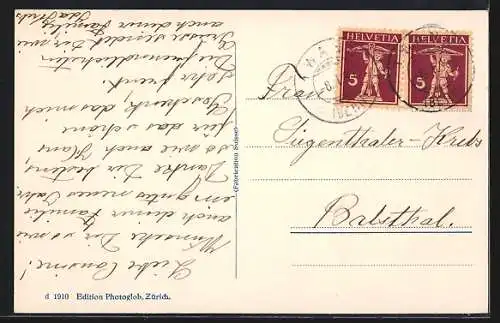 Liebe Cousine!
Wünsche Dir so wie
auch deiner Familie
ein gutes neues Jahr.
Danke Dir bestens,
so wie auch Hans
für das schöne
Geschenk, das mich
sehr freut.
Die freundlichsten
Grüsse sendet Dir wie
auch deiner Familie
HELVETIA
5
HELVETIA
5
(BERN)
Frau
Siegenthaler-Krebs
Balsthal.
(Fabrication Suisse)
d 1910 Edition Photoglob, Zürich.